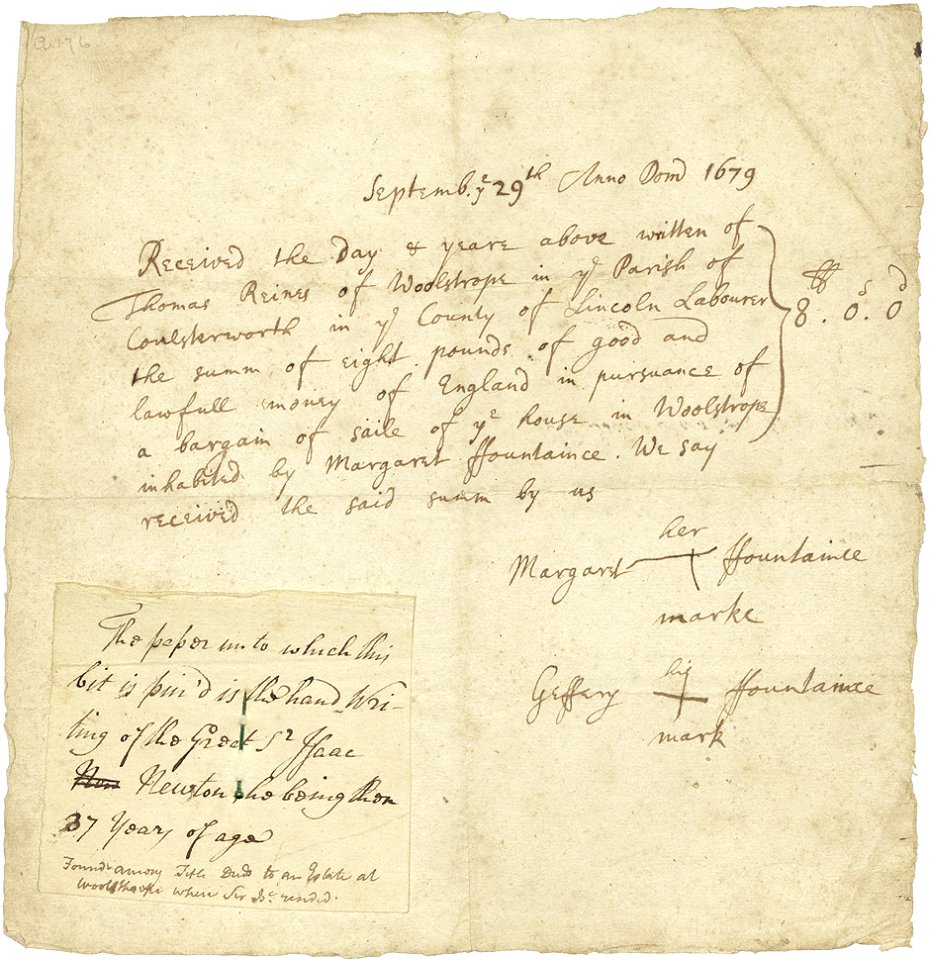 Septemb. yᵉ 29th Anno Dom̄ 1679
Received the day & yeare above written of
Thomas Reines of Woolstrope in yᵉ Parish of
Coulsterworth in yᵉ County of Lincoln Labourer
the summ of eight pounds of good and
lawfull money of England in pursuance of
a bargain of saile of yᵉ house in Woolstrope
inhabited by Margaret ffountaince. We say
received the said summ by us
s d
8 . 0 . 0
her
Margaret ffountaince
marke
his
Geffery ffountaince
mark
The paper unto which this
bit is pin'd is the hand Wri-
ting of the Great Sr Isaac
Newton he being then
37 Years of age
Found among Title Deeds to an Estate at
Woolsthorpe where Sir Is: resided.